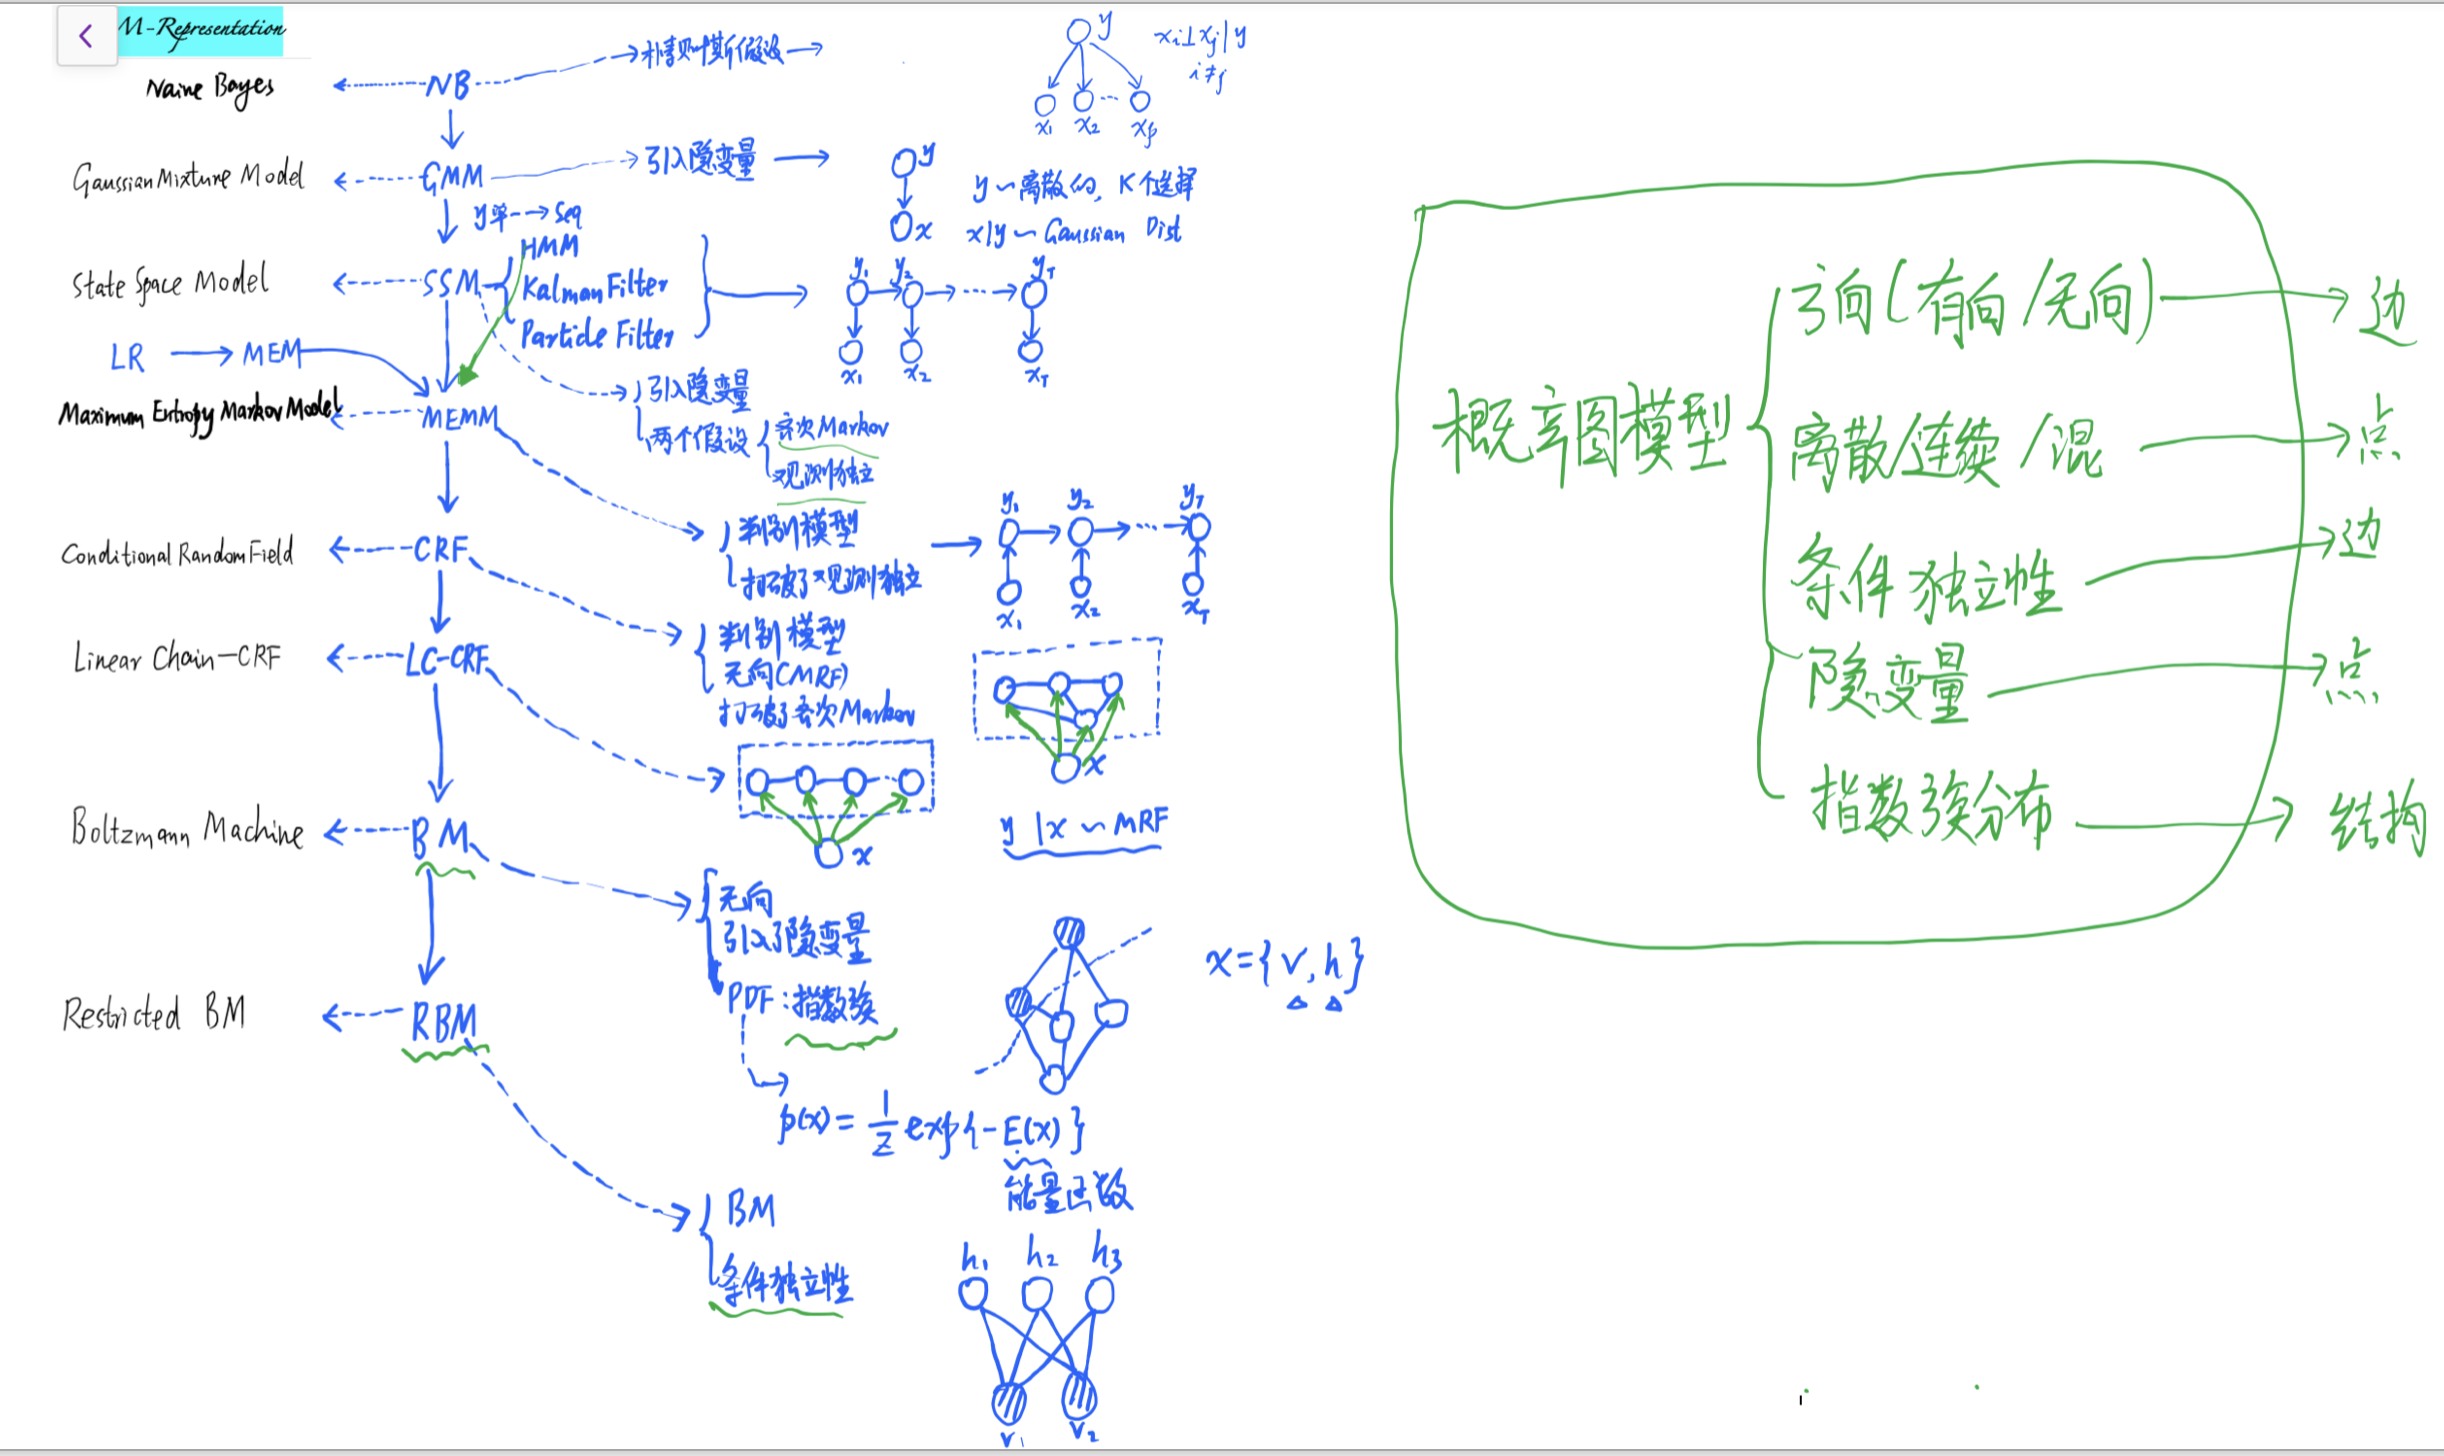 M-Representation
Naive Bayes
NB
朴素贝叶斯假设
y
xi⊥xj|y
i≠j
x₁ x₂ ... xp
Gaussian Mixture Model
GMM
引入隐变量
y
x
y ~ 离散的, K个选择
x|y ~ Gaussian Dist
y单 → Seq
State Space Model
SSM
HMM
Kalman Filter
Particle Filter
y₁ y₂ ... yT
x₁ x₂ xT
引入隐变量
两个假设
齐次Markov
观测独立
LR → MEM
Maximum Entropy Markov Model
MEMM
判别模型
打破了观测独立
y₁ y₂ ... yT
x₁ x₂ xT
Conditional Random Field
CRF
判别模型
无向(MRF)
打破了齐次Markov
x
y|x ~ MRF
Linear Chain-CRF
LC-CRF
x
Boltzmann Machine
BM
无向
引入了隐变量
PDF:指数族
x={v,h}
p(x) = 1/Z exp{-E(x)}
能量函数
Restricted BM
RBM
BM
条件独立性
h₁ h₂ h₃
v₁ v₂
概率图模型
方向(有向/无向) → 边
离散/连续/混 → 点
条件独立性 → 边
隐变量 → 点
指数族分布 → 结构